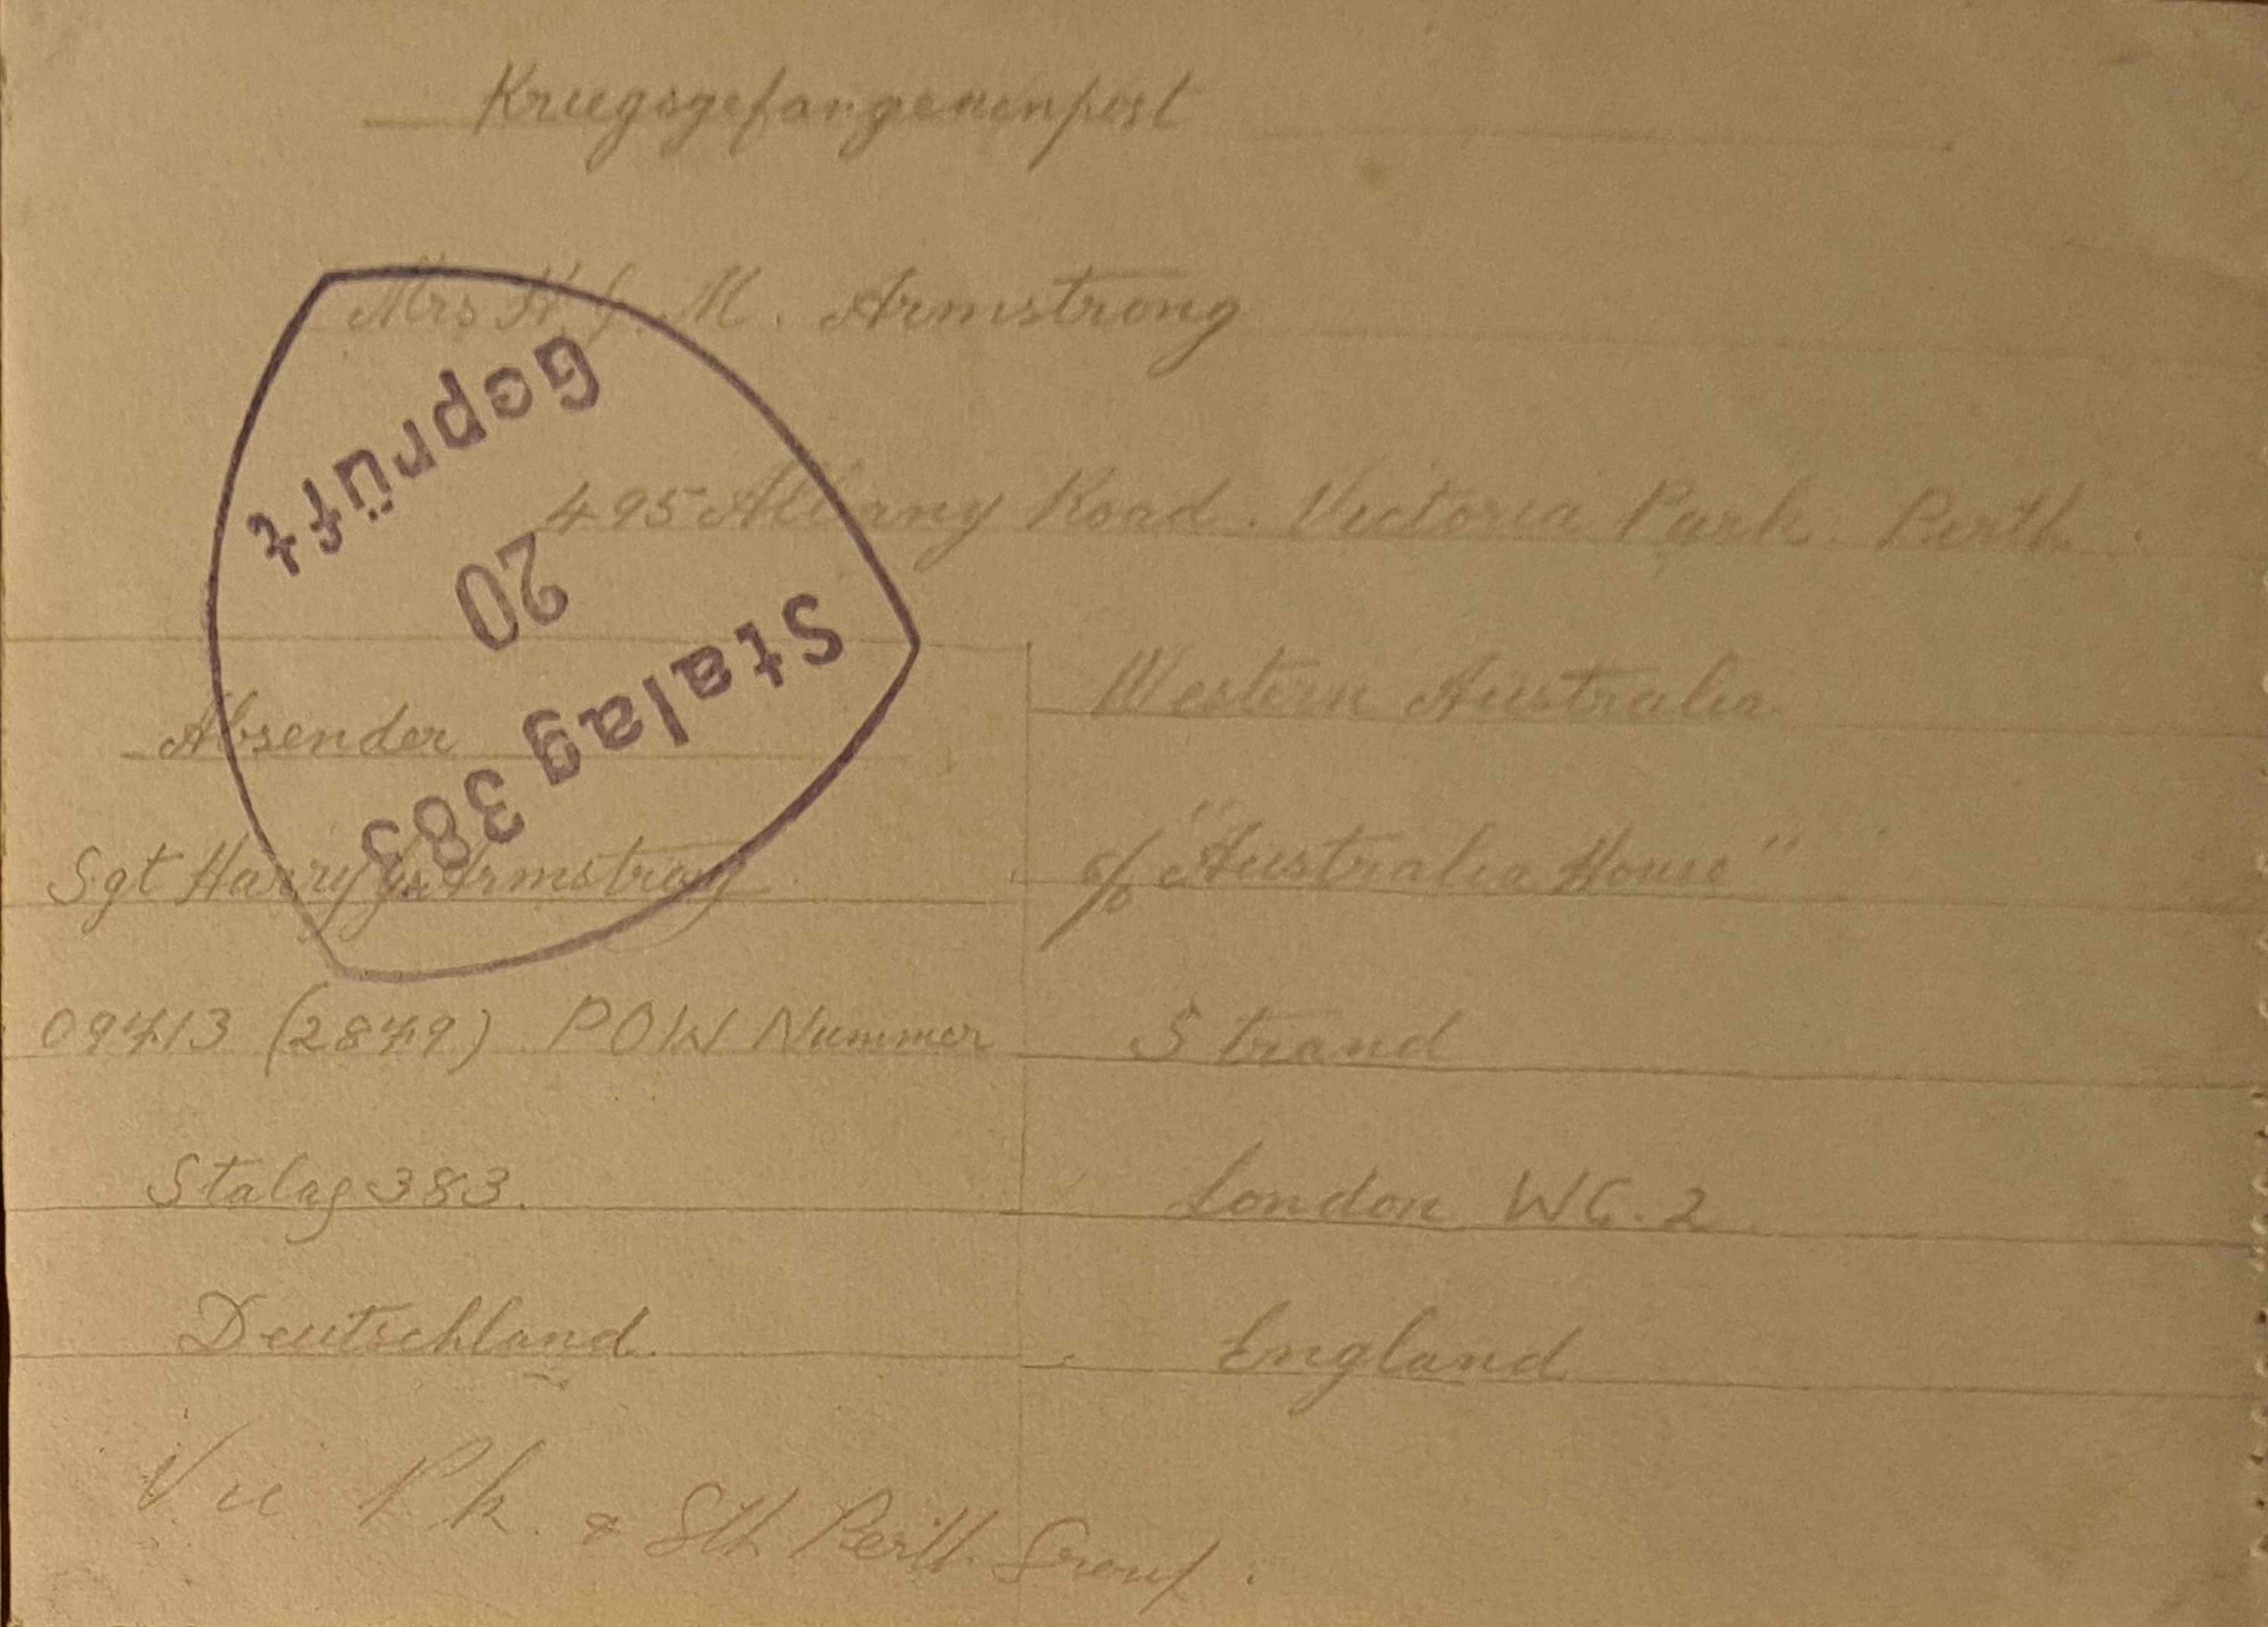 Kriegsgefangenenpost
Mrs H. J. M. Armstrong
495 Albany Road. Victoria Park. Perth.
Western Australia
c/o "Australia House"
Strand
London WC.2
England
Absender
Sgt Harry Armstrong
09413 (2849) POW Nummer
Stalag 383.
Deutschland.
Vic Pk. & Sth Perth Group.
Geprüft
20
Stalag 383